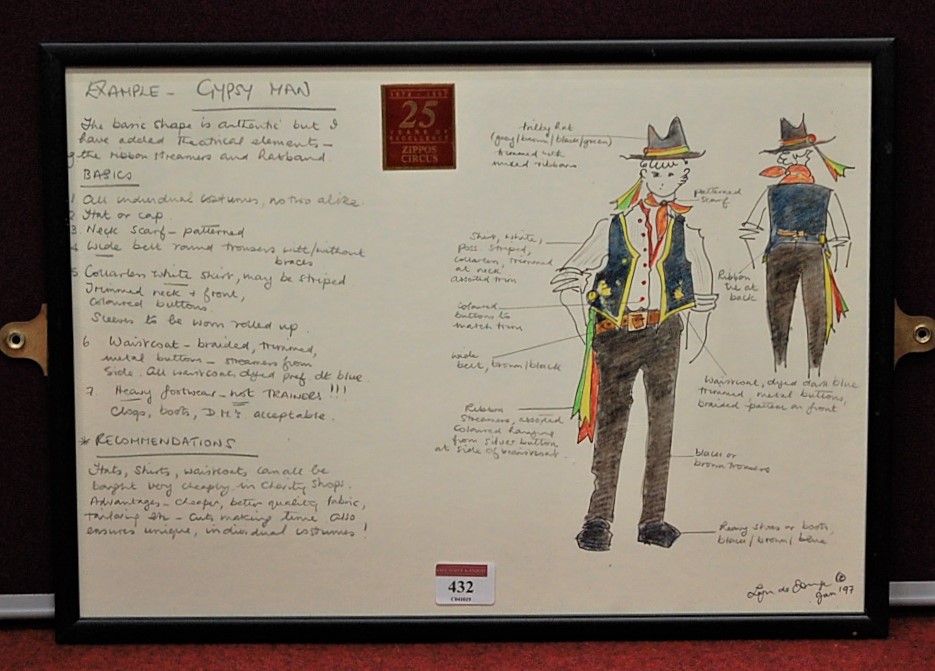 EXAMPLE - GYPSY MAN
The basic shape is authentic but I
have added theatrical elements -
the ribbon streamers and hatband
BASICS
1 All individual costumes, no two alike.
2. Hat or cap.
3. Neck Scarf - patterned
4. Wide belt round trousers with/without
braces
5 Collarless White Shirt, may be striped
Trimmed neck + front,
coloured buttons.
Sleeves to be worn rolled up.
6 Waistcoat - braided, trimmed,
metal buttons - streamers from
side. All waistcoats dyed pref. dk blue.
7. Heavy footwear - not TRAINERS!!!
Clogs, boots, D.M's acceptable.
* RECOMMENDATIONS
Hats, Shirts, waistcoats, can all be
bought very cheaply in Charity Shops.
Advantages - cheaper, better quality fabric,
tailoring etc - Cuts making time Also
ensures unique, individual costumes!
25
YEARS OF
EXCELLENCE
ZIPPOS
CIRCUS
trilby hat
(grey/brown/black/green)
trimmed with
mixed ribbons
patterned
scarf
Shirt, white,
poss. striped,
collarless, trimmed
at neck
assorted trim
Coloured
buttons to
match trim
wide
belt, brown/black
Ribbon
Streamers, assorted
Coloured hanging
from silver button
at side of waistcoat.
Ribbon
tie at
back
Waistcoat, dyed dark blue
trimmed, metal buttons,
braided pattern on front
black or
brown trousers
Heavy shoes or boots,
black/brown/blue
432
Jan '97